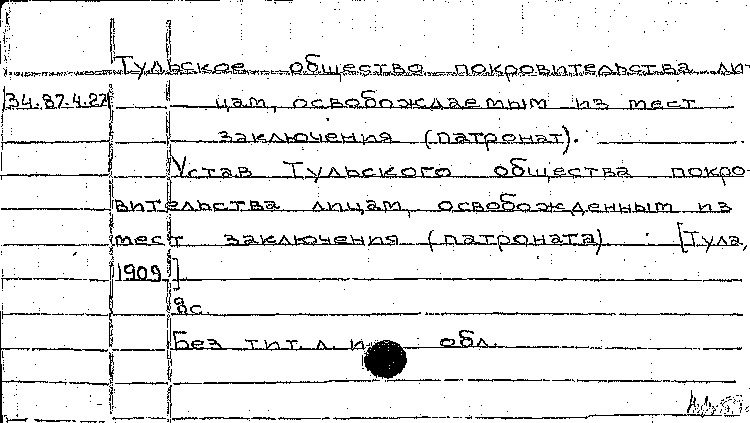 Тульское общество покровительства ли-
34.87.4.27 цам, освобождаемым из мест
заключения (патронат).
Устав Тульского общества покро-
вительства лицам, освобожденным из
мест заключения (патроната). [Тула,
1909]
8с.
Без тит. л. и обл.